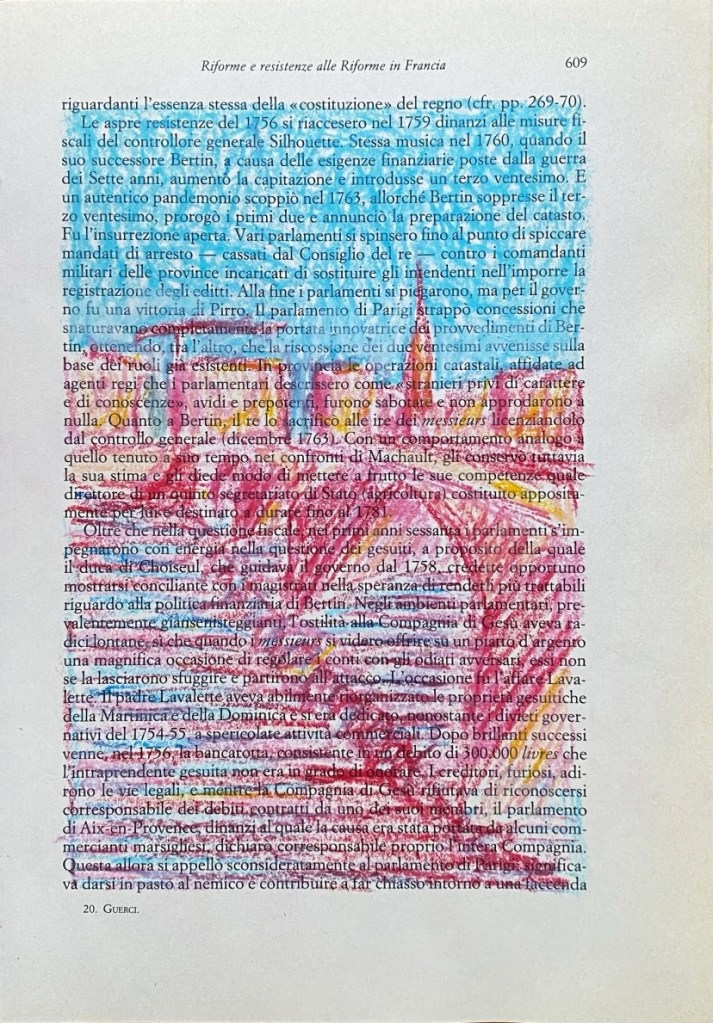 Riforme e resistenze alle Riforme in Francia 609
riguardanti l'essenza stessa della «costituzione» del regno (cfr. pp. 269-70).
Le aspre resistenze del 1756 si riaccesero nel 1759 dinanzi alle misure fi-
scali del controllore generale Silhouette. Stessa musica nel 1760, quando il
suo successore Bertin, a causa delle esigenze finanziarie poste dalla guerra
dei Sette anni, aumentò la capitazione e introdusse un terzo ventesimo. E
un autentico pandemonio scoppiò nel 1763, allorché Bertin soppresse il ter-
zo ventesimo, prorogò i primi due e annunciò la preparazione del catasto.
Fu l'insurrezione aperta. Vari parlamenti si spinsero fino al punto di spiccare
mandati di arresto — cassati dal Consiglio del re — contro i comandanti
militari delle province incaricati di sostituire gli intendenti nell'imporre la
registrazione degli editti. Alla fine i parlamenti si piegarono, ma per il gover-
no fu una vittoria di Pirro. Il parlamento di Parigi strappò concessioni che
snaturavano completamente la portata innovatrice dei provvedimenti di Ber-
tin, ottenendo, tra l'altro, che la riscossione dei due ventesimi avvenisse sulla
base dei ruoli già esistenti. In provincia le operazioni catastali, affidate ad
agenti regi che i parlamentari descrissero come «stranieri privi di carattere
e di conoscenze», avidi e prepotenti, furono sabotate e non approdarono a
nulla. Quanto a Bertin, il re lo sacrificò alle ire dei messieurs licenziandolo
dal controllo generale (dicembre 1763). Con un comportamento analogo a
quello tenuto a suo tempo nei confronti di Machault, gli conservò tuttavia
la sua stima e gli diede modo di mettere a frutto le sue competenze quale
direttore di un quinto segretariato di Stato (agricoltura) costituito apposita-
mente per lui e destinato a durare fino al 1781.
Oltre che nella questione fiscale, nei primi anni sessanta i parlamenti s'im-
pegnarono con energia nella questione dei gesuiti, a proposito della quale
il duca di Choiseul, che guidava il governo dal 1758, credette opportuno
mostrarsi conciliante con i magistrati nella speranza di renderli più trattabili
riguardo alla politica finanziaria di Bertin. Negli ambienti parlamentari, pre-
valentemente giansenisteggianti, l'ostilità alla Compagnia di Gesù aveva ra-
dici lontane, sì che quando i messieurs si videro offrire su un piatto d'argento
una magnifica occasione di regolare i conti con gli odiati avversari, essi non
se la lasciarono sfuggire e partirono all'attacco. L'occasione fu l'affare Lava-
lette. Il padre Lavalette aveva abilmente riorganizzato le proprietà gesuitiche
della Martinica e della Dominica e si era dedicato, nonostante i divieti gover-
nativi del 1754-55, a spericolate attività commerciali. Dopo brillanti successi
venne, nel 1756, la bancarotta, consistente in un debito di 300.000 livres che
l'intraprendente gesuita non era in grado di onorare. I creditori, furiosi, adi-
rono le vie legali, e mentre la Compagnia di Gesù rifiutava di riconoscersi
corresponsabile dei debiti contratti da uno dei suoi membri, il parlamento
di Aix-en-Provence, dinanzi al quale la causa era stata portata da alcuni com-
mercianti marsigliesi, dichiarò corresponsabile proprio l'intera Compagnia.
Questa allora si appellò sconsideratamente al parlamento di Parigi: significa-
va darsi in pasto al nemico e contribuire a far chiasso intorno a una faccenda
20. GUERCI.